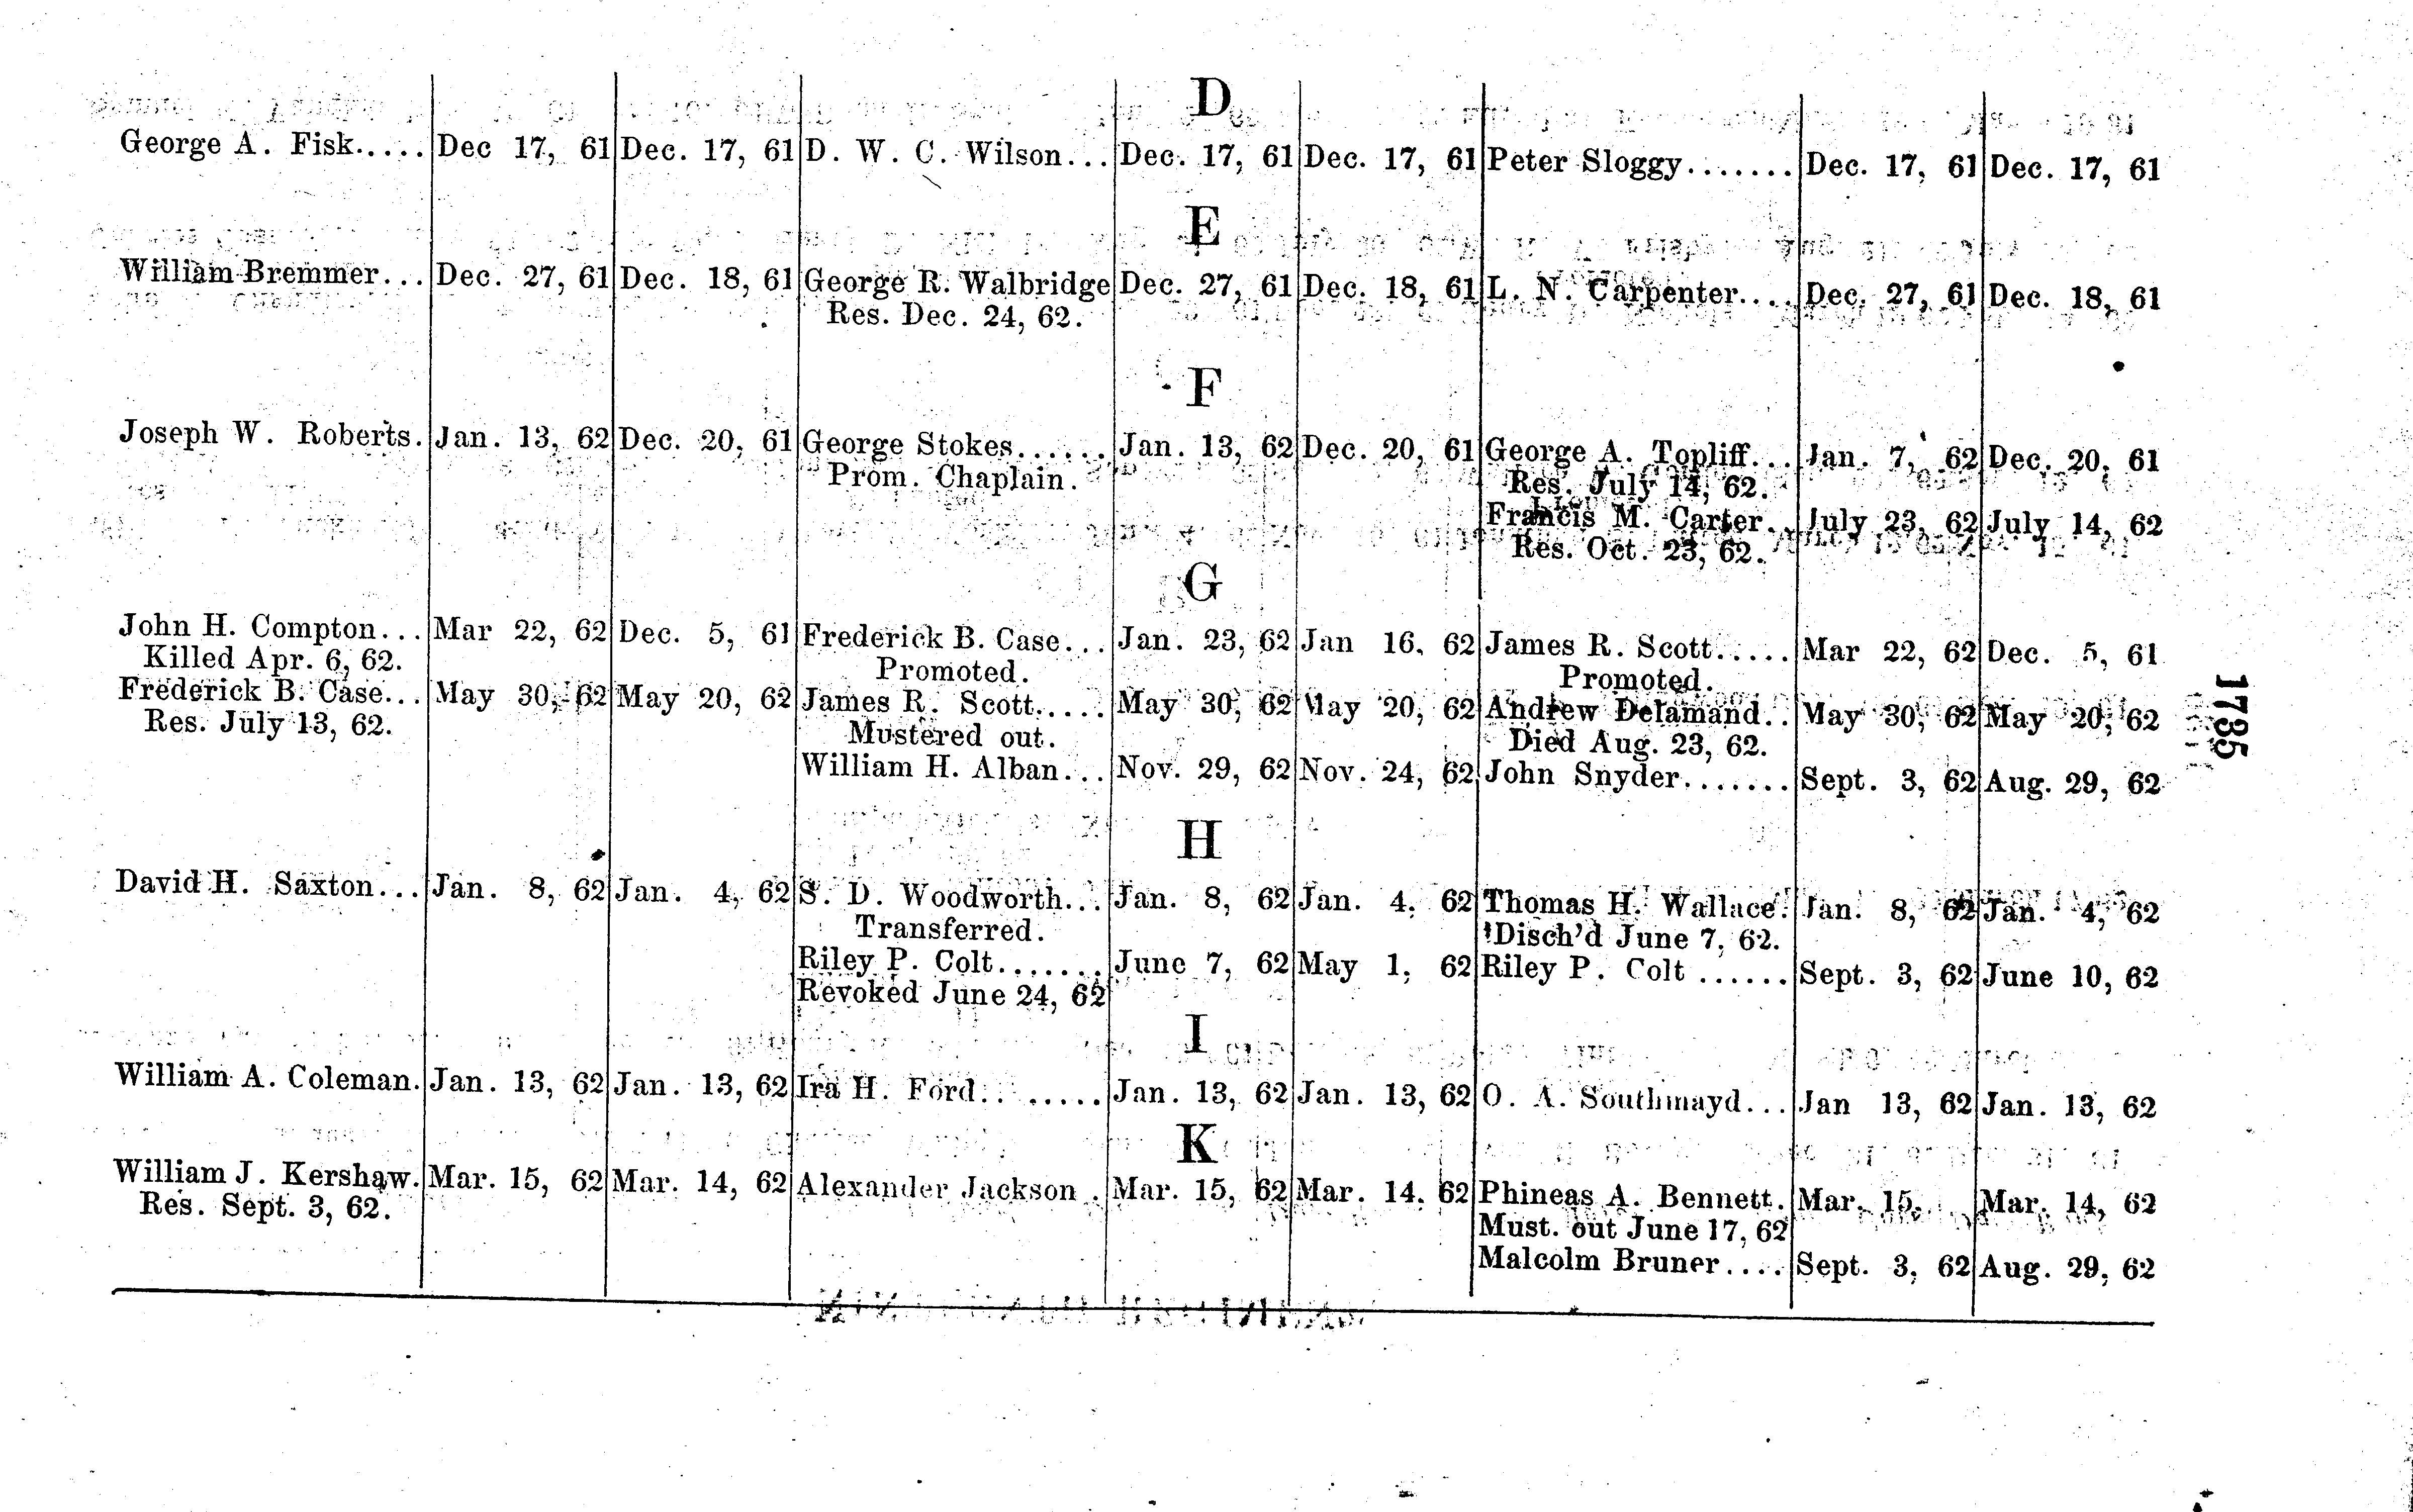 D
George A. Fisk..... Dec 17, 61 Dec. 17, 61 D. W. C. Wilson... Dec. 17, 61 Dec. 17, 61 Peter Sloggy....... Dec. 17, 61 Dec. 17, 61
E
William Bremmer... Dec. 27, 61 Dec. 18, 61 George R. Walbridge Dec. 27, 61 Dec. 18, 61 L. N. Carpenter.... Dec. 27, 61 Dec. 18, 61
Res. Dec. 24, 62.
F
Joseph W. Roberts. Jan. 13, 62 Dec. 20, 61 George Stokes...... Jan. 13, 62 Dec. 20, 61 George A. Topliff... Jan. 7, 62 Dec. 20, 61
Prom. Chaplain. Res. July 14, 62.
Francis M. Carter.. July 23, 62 July 14, 62
Res. Oct. 23, 62.
G
John H. Compton... Mar 22, 62 Dec. 5, 61 Frederick B. Case... Jan. 23, 62 Jan 16, 62 James R. Scott..... Mar 22, 62 Dec. 5, 61
Killed Apr. 6, 62. Promoted. Promoted.
Frederick B. Case... May 30, 62 May 20, 62 James R. Scott..... May 30, 62 May 20, 62 Andrew Delamand.. May 30, 62 May 20, 62
Res. July 13, 62. Mustered out. Died Aug. 23, 62.
William H. Alban... Nov. 29, 62 Nov. 24, 62 John Snyder....... Sept. 3, 62 Aug. 29, 62
1735
H
David H. Saxton... Jan. 8, 62 Jan. 4, 62 S. D. Woodworth... Jan. 8, 62 Jan. 4, 62 Thomas H. Wallace. Jan. 8, 62 Jan. 4, 62
Transferred. Disch'd June 7, 62.
Riley P. Colt....... June 7, 62 May 1, 62 Riley P. Colt ...... Sept. 3, 62 June 10, 62
Revoked June 24, 62
I
William A. Coleman. Jan. 13, 62 Jan. 13, 62 Ira H. Ford.. ..... Jan. 13, 62 Jan. 13, 62 O. A. Southmayd... Jan 13, 62 Jan. 13, 62
K
William J. Kershaw. Mar. 15, 62 Mar. 14, 62 Alexander Jackson . Mar. 15, 62 Mar. 14. 62 Phineas A. Bennett. Mar. 15, Mar. 14, 62
Res. Sept. 3, 62. Must. out June 17, 62
Malcolm Bruner.... Sept. 3, 62 Aug. 29, 62